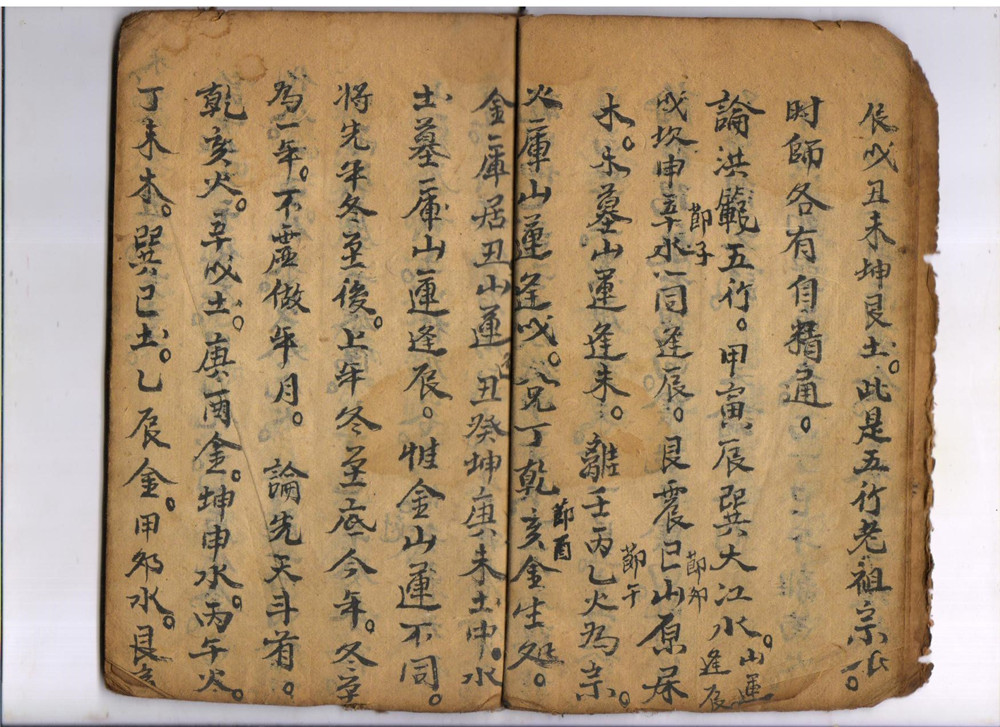 辰戌丑未坤艮土。此是五行老祖宗。
时師各有自精通。
論洪範五行。甲寅辰巽大江水。山運逢辰
戌坎申辛水同逢辰。艮震巳山原屬
節子
節卯
木。木墓山運逢未。離壬丙乙火為宗。
節午
火庫山運逢戌。兌丁乾亥金生处。
節酉
金庫居丑山運丑癸坤庚未土中。水
土墓庫山運逢辰。惟金山運不同。
将先年冬至後。上年冬至底今年。冬至
為一年。不虛做年月。論先天斗首。
乾亥火。辛戌土。庚酉金。坤申水。丙午火。
丁未木。巽巳土。乙辰金。甲卯水。艮